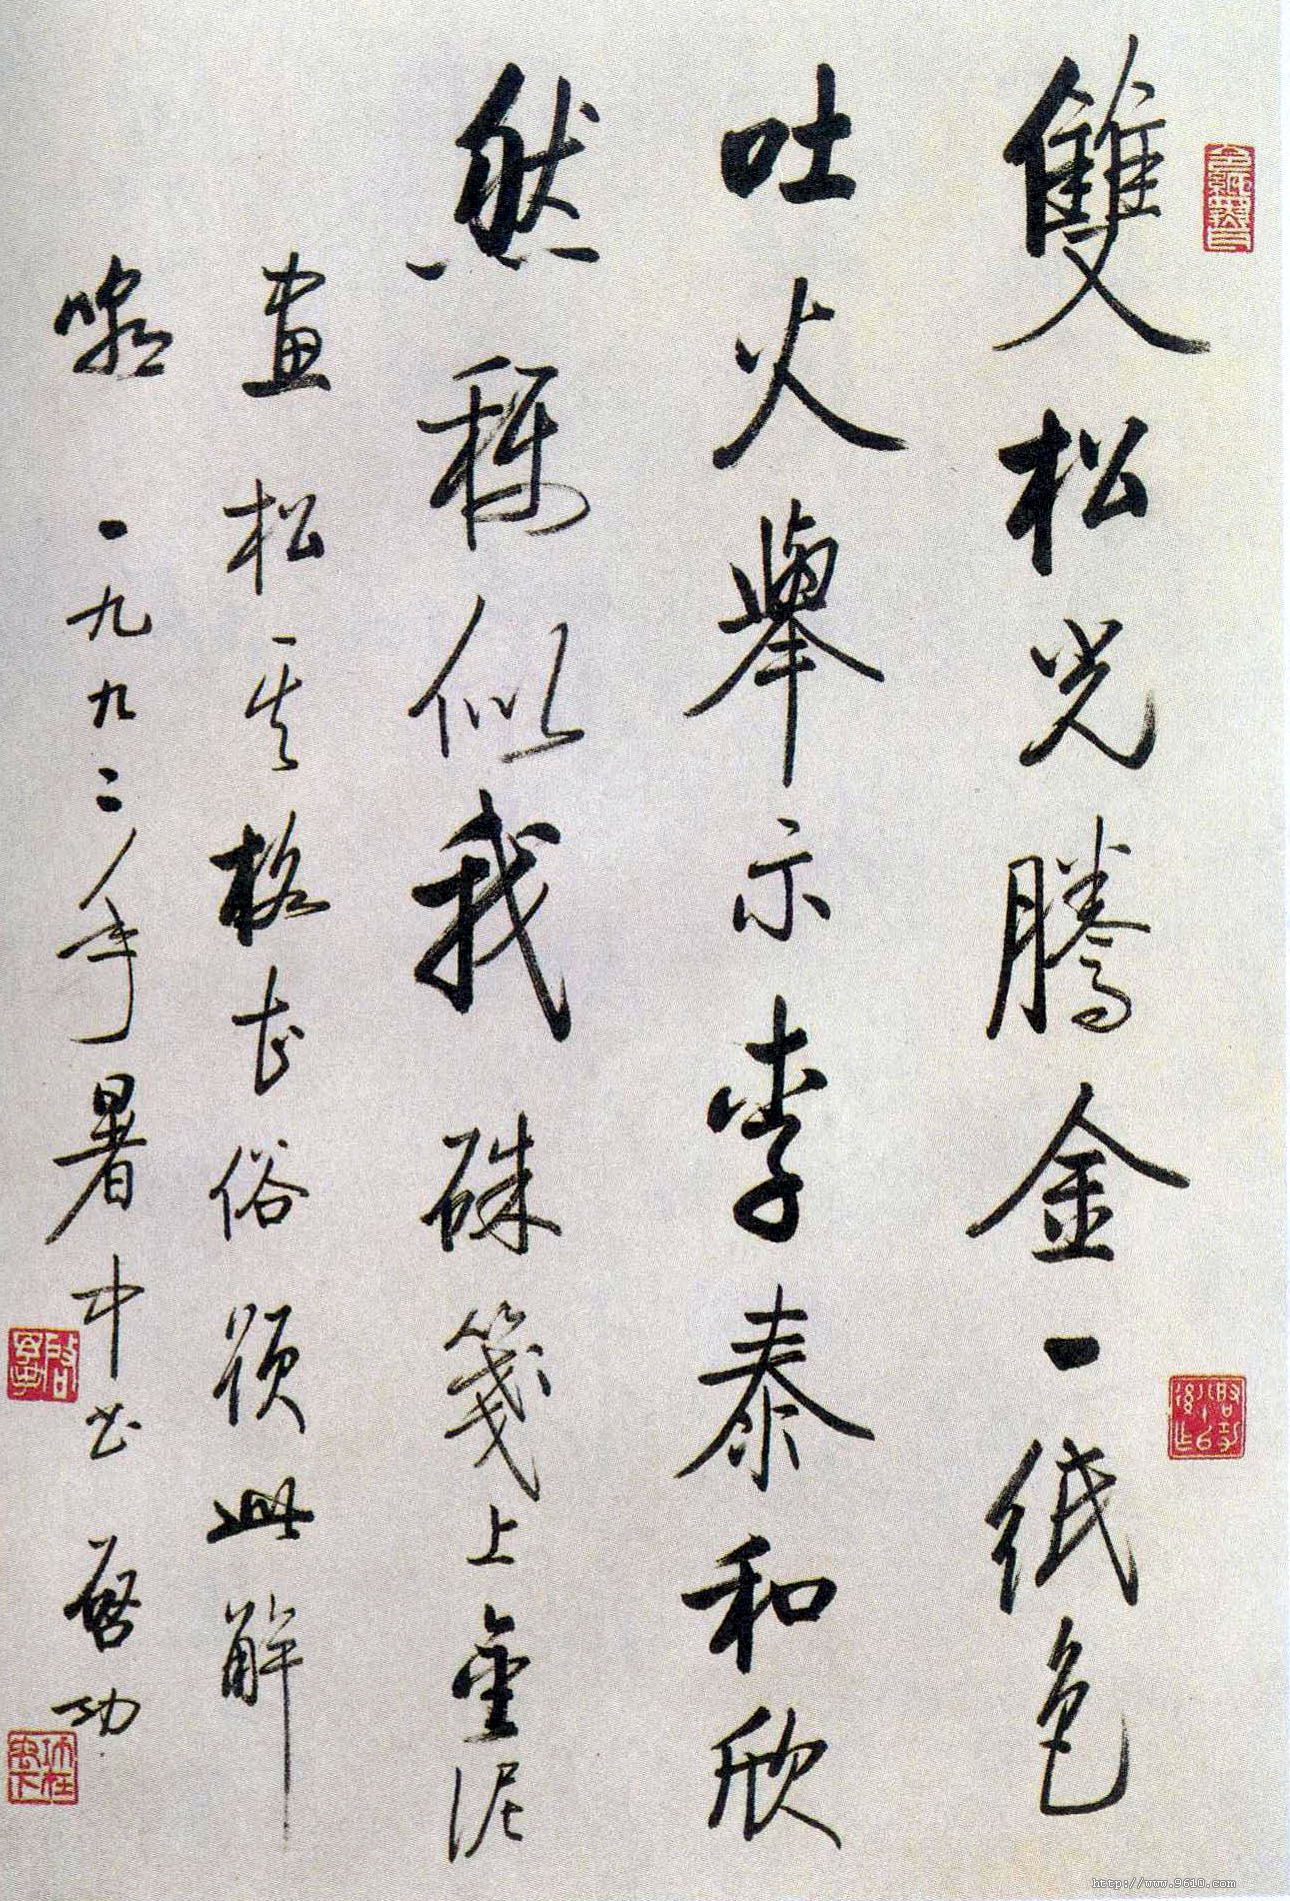 雙松光騰金一紙色
吐火舉示李泰和欣
然稱似我硃箋上金泥
畫松其格甚俗題此解
嘲 一九九二年暑中書 啓功
啓功
http://www.9610.com